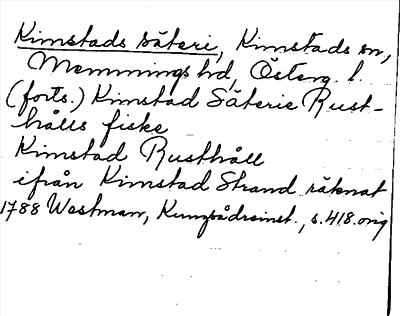 Kimstads säteri, Kimstads sn,
Memmings hd, Österg. l.
(forts.) Kimstad Säterie Rust-
hålls fiske
Kimstad Rusthåll
ifrån Kimstad Strand räknat
1788 Westman, Kungsådreinst., s. 418. orig